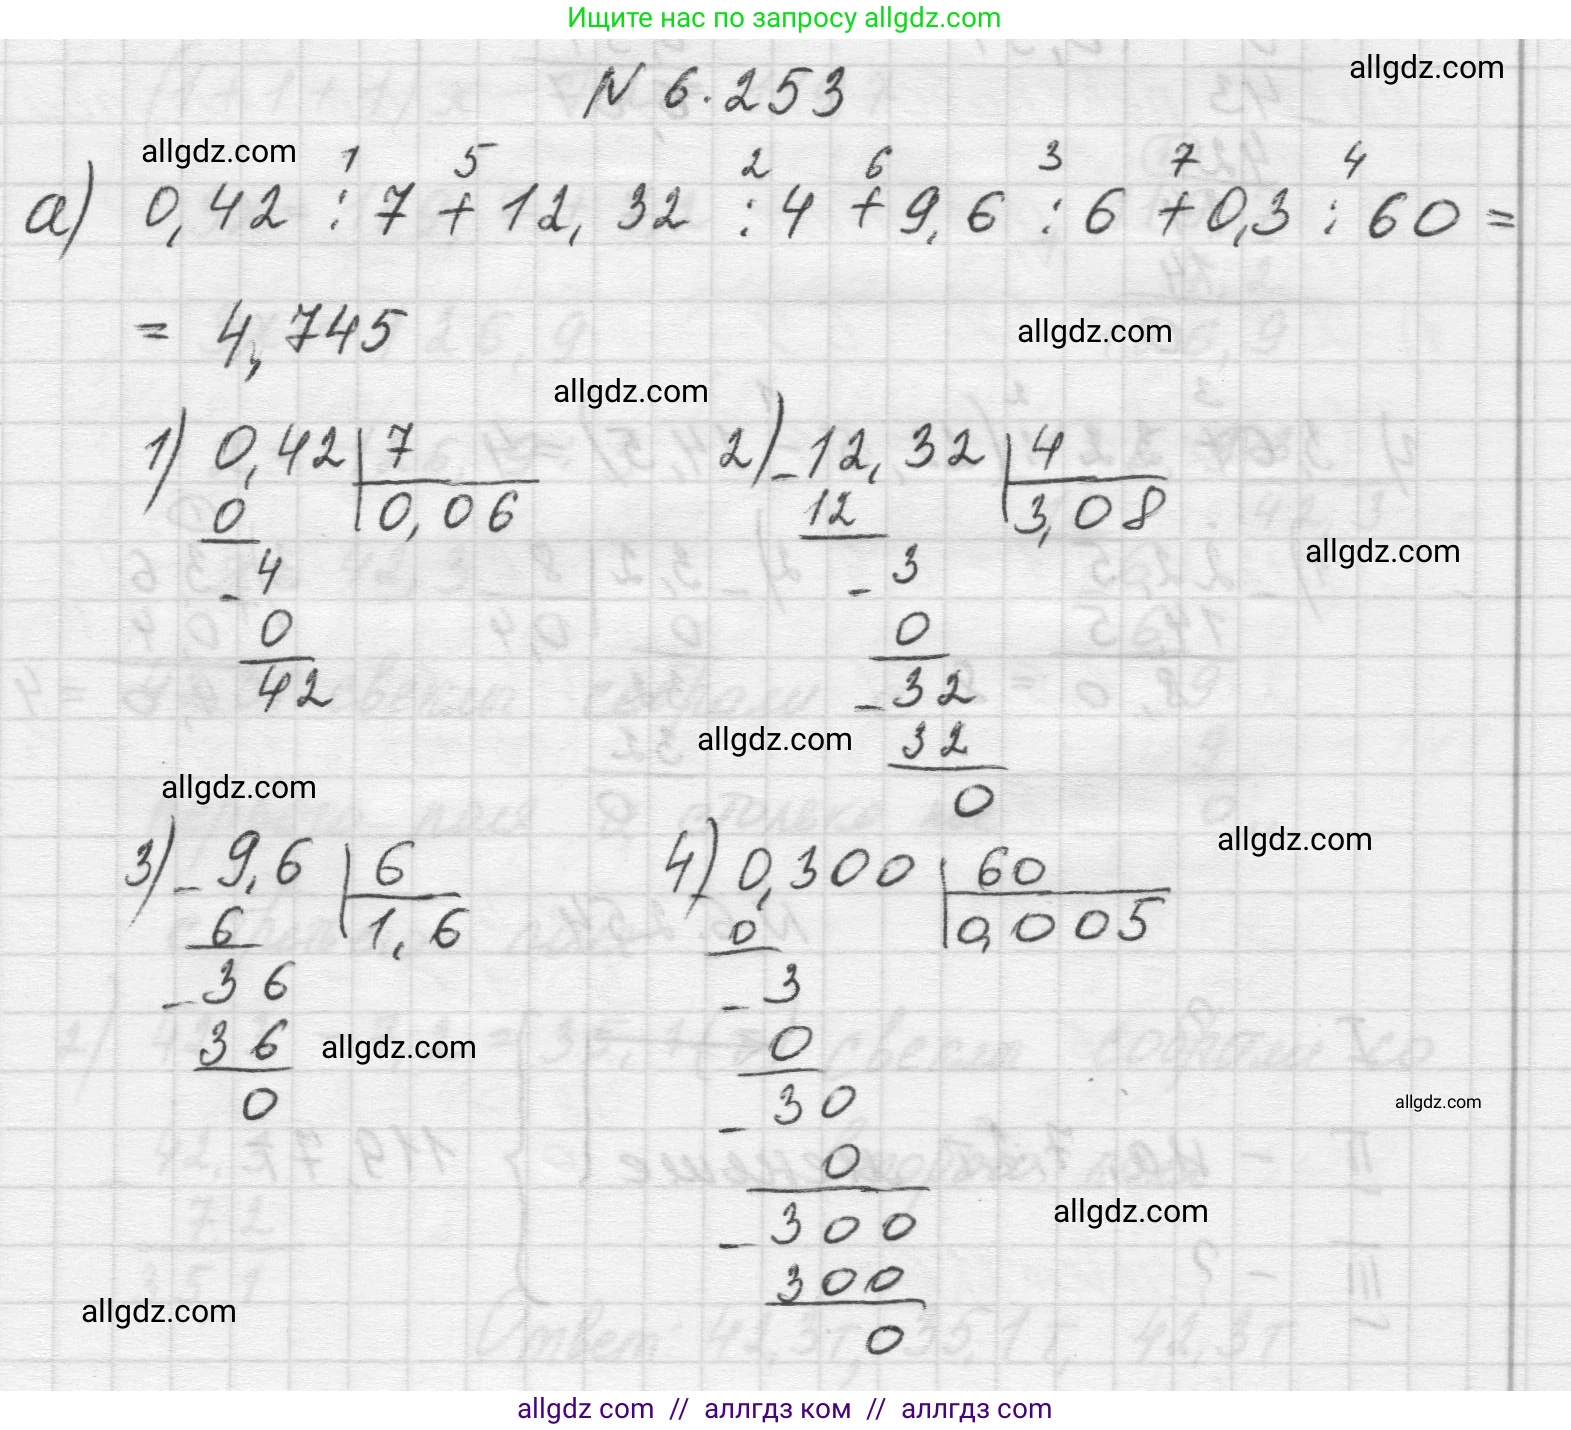 Ищите нас по запросу allgdz.com
allgdz.com
N 6.253
allgdz.com
1 5 2 6 3 7 4
а) 0,42 : 7 + 12,32 : 4 + 9,6 : 6 + 0,3 : 60 =
= 4,745
allgdz.com
allgdz.com
1) 0,42 7
0 0,06
- 4
0
42
2) - 12,32 4
12 3,08
- 3
0
- 32
32
0
allgdz.com
allgdz.com
allgdz.com
allgdz.com
3) - 9,6 6
6 1,6
- 36
36
0
allgdz.com
4) 0,300 60
0 0,005
- 3
0
- 30
0
- 300
300
0
allgdz.com
allgdz.com
allgdz.com
allgdz com // аллгдз ком // аллгдз com